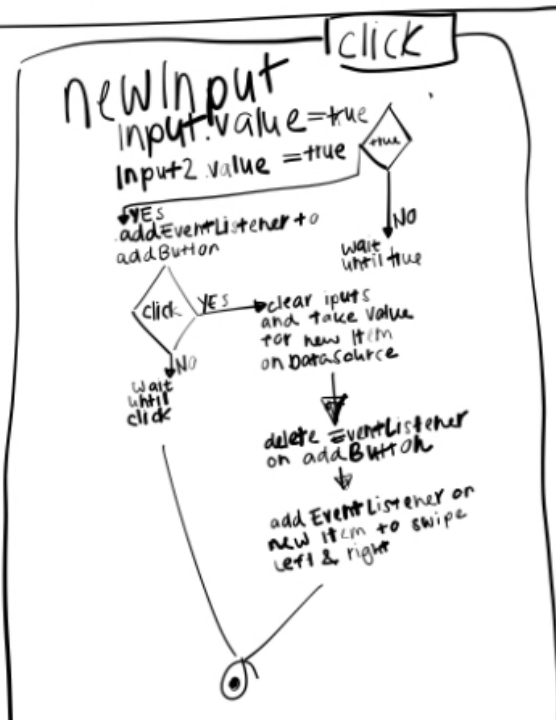 click
newInput
input.value=true
Input2.value =true
true
YES
addEventListener to
addButton
NO
wait
until true
click
YES
clear iputs
and take value
for new Item
on Datasource
NO
wait
until
click
delete EventListener
on addButton
add EventListener on
new Item to swipe
left & right